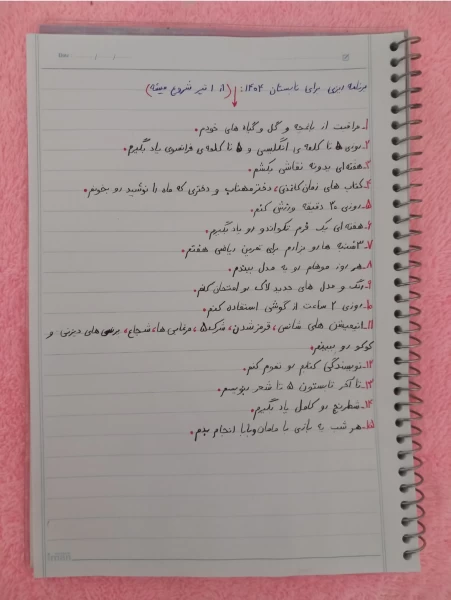 برنامه ریزی برای تابستان ۱۴۰۴: (از ۱ تیر شروع میشه)
۱ـ مراقبت از باغچه و گل و گیاه های خودم.
۲ـ روزی ۵ تا کلمه ی انگلیسی و ۵ تا کلمه ی فرانسوی یاد بگیرم.
۳ـ هفته ای بدونه نقاشی بکشم.
۴ـ کتاب های رمان کاغذی، دختر مهتاب و دختری که ماه را نوشید رو بخونم.
۵ـ روزی ۳۰ دقیقه ورزش کنم.
۶ـ هفته ای یک فرم تکواندو رو یاد بگیرم.
۷ـ ۳شنبه ها رو بزارم برای تمرین ریاضی هفتم.
۸ـ هر روز موهام رو یه مدل ببندم.
۹ـ رنگ و مدل های جدید لاک رو امتحان کنم.
۱۰ـ روزی ۲ ساعت از گوشی استفاده کنم.
۱۱ـ انیمیشن های شانسی، قرمز شدن، شرک۵، مرغابی ها، شجاع، پرنسس های دیزنی و
کوکو رو ببینم.
۱۲ـ نویسندگی کتابم رو تموم کنم.
۱۳ـ تا آخر تابستون ۵ تا شعر بنویسم.
۱۴ـ شطرنج رو کامل یاد بگیرم.
۱۵ـ هر شب یه بازی با مامان و بابا انجام بدم.